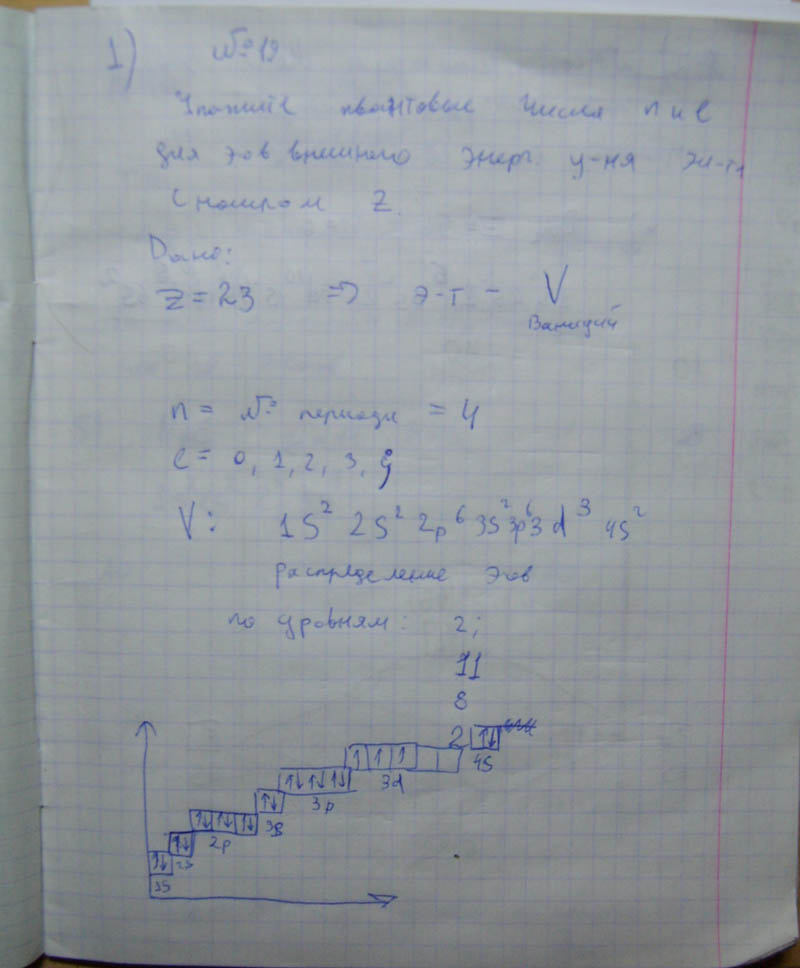 1) №19
Укажите квантовые числа n и l
для э-ов внешнего энерг у-ня эл-та
с номером Z.
Дано:
Z = 23 => э-т – V
Ванадий
n = № периода = 4
l = 0, 1, 2, 3,
V: 1S² 2S² 2p⁶ 3S² 3p⁶ 3d³ 4S²
распределение э-ов
по уровням: 2;
11
8
2
4S
3d
3p
3S
2p
2s
1S